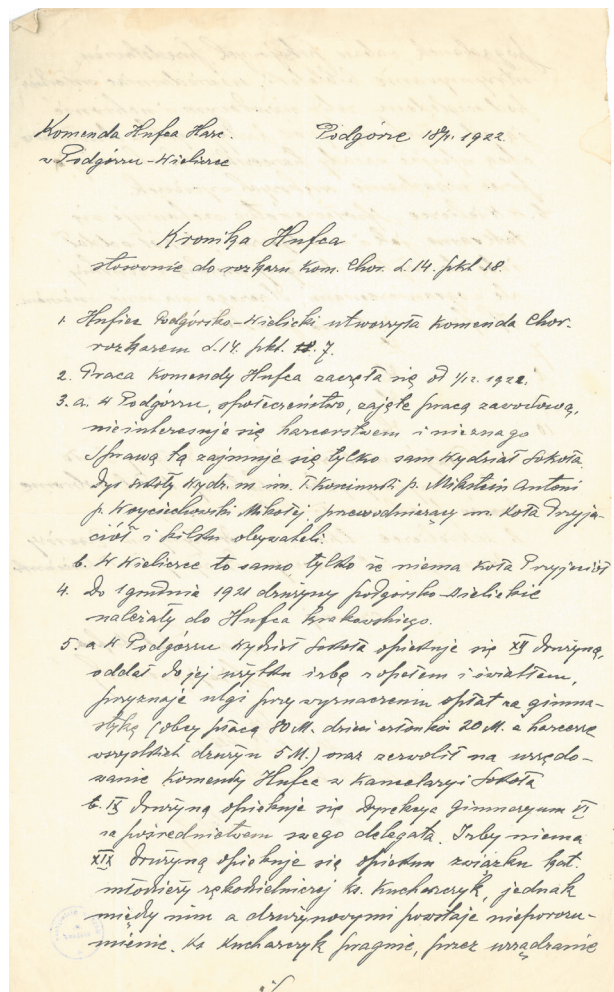 Komenda Hufca Harc. Podgórze 18/I. 1922.
w Podgórzu-Wieliczce
Kronika Hufca
stosownie do rozkazu Kom. Chor. L.14. pkt 18.
1. Hufiec Podgórsko-Wielicki utworzyła Komenda Chor.
rozkazem L.14. pkt. 7.
2. Praca Komendy Hufca zaczęła się od 1/12. 1921.
3. a. W Podgórzu, społeczeństwo, zajęte pracą zawodową,
nieinteresuje się harcerstwem i niezna go
Sprawą tą zajmuje się tylko sam Wydział Sokoła.
Dyr. szkoły wydz. m. im. T. Kościuszki p. Mikstein Antoni
p. Wojciechowski Mikołaj, przewodniczący m. Koła Przyja-
ciół i kilku obywateli.
b. W Wieliczce to samo tylko że niema Koła Przyjaciół
4. Do 1 grudnia 1921 drużyny podgórsko-wielickie
należały do Hufca Krakowskiego.
5. a W Podgórzu Wydział Sokoła opiekuje się drużyną,
oddał do jej użytku izbę z opałem i światłem,
przyznaje ulgi przy wyznaczeniu opłat za gimna-
stykę (obcy płacą 80 M. dzieci członków 20 M. a harcerze
wszystkich drużyn 5 M.) oraz zezwolił na urzędo-
wanie Komendy Hufca w Kancelaryi Sokoła
b. IX drużyną opiekuje się Dyrekcya gimnazyum VI
za pośrednictwem swego delegata. Izby niema
XIX drużyną opiekuje się opiekun związku kat.
młodzieży rękodzielniczej ks. Kucharczyk, jednak
między nim a drużynowymi powstaje nieporozu-
mienie. Ks. Kucharczyk pragnie, przez urządzanie